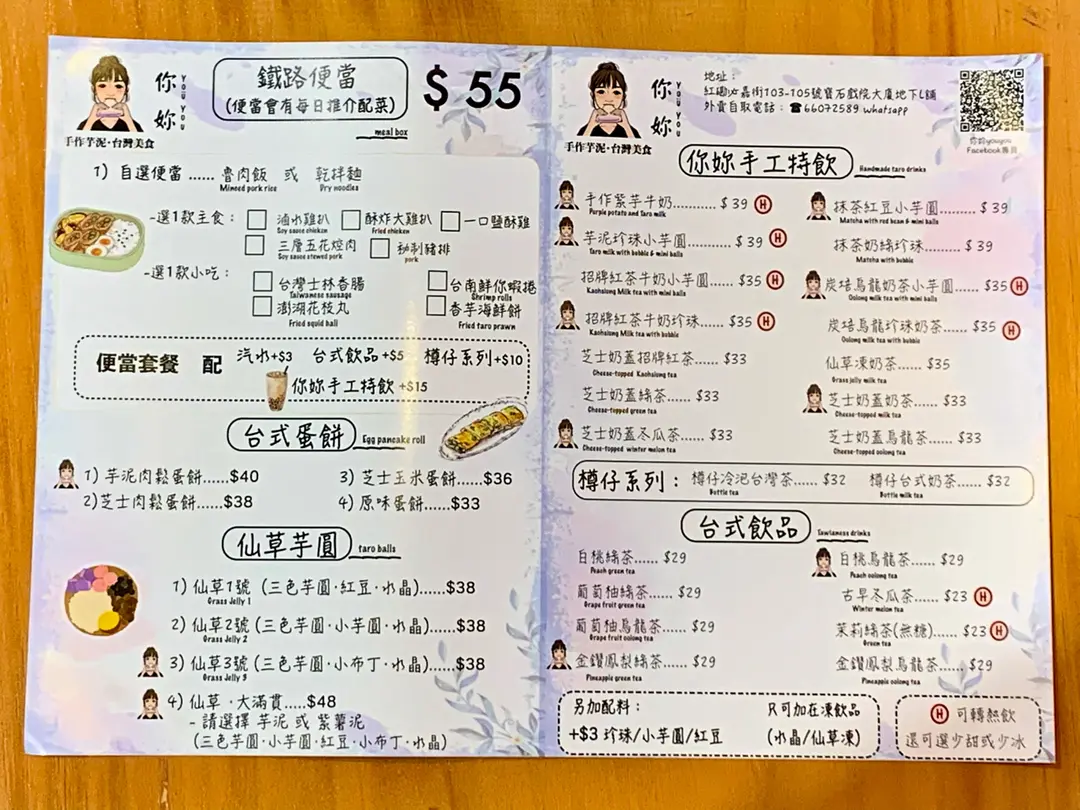 你妳
YOU YOU
手作芋泥·台灣美食
鐵路便當
(便當會有每日推介配菜)
$ 55
meal box
1) 自選便當...... 魯肉飯 或 乾拌麵
Minced pork rice Dry noodles
-選1款主食: 滷水雞扒 酥炸大雞扒 一口鹽酥雞
Soy sauce chicken Fried chicken
三層五花焢肉 秘制豬排
Soy sauce stewed pork pork
-選1款小吃: 台灣士林香腸 台南鮮你蝦捲
Taiwanese sausage Shrimp rolls
澎湖花枝丸 香芋海鮮餅
Fried squid ball Fried taro prawn
便當套餐 配 汽水+$3 台式飲品+$5 樽仔系列+$10
你妳手工特飲 +$15
台式蛋餅 Egg pancake roll
1) 芋泥肉鬆蛋餅......$40 3) 芝士玉米蛋餅......$36
2)芝士肉鬆蛋餅......$38 4) 原味蛋餅......$33
仙草芋圓 taro balls
1) 仙草1號 (三色芋圓·紅豆·水晶)......$38
Grass Jelly 1
2) 仙草2號 (三色芋圓·小芋圓·水晶)......$38
Grass Jelly 2
3) 仙草3號 (三色芋圓·小布丁·水晶)......$38
Grass Jelly 3
4) 仙草·大滿貫......$48
- 請選擇 芋泥 或 紫薯泥
(三色芋圓·小芋圓·紅豆·小布丁·水晶)
你妳
YOU YOU
手作芋泥·台灣美食
地址:
紅磡必嘉街103-105號寶石戲院大廈地下L舖
外賣自取電話: ☎66072589 whatsapp
你妳youyou
Facebook專頁
你妳手工特飲 Handmade taro drinks
手作紫芋牛奶......... $ 39 H 抹茶紅豆小芋圓......... $ 39
Purple potato and Taro milk Matcha with red bean & mini balls
芋泥珍珠小芋圓......... $ 39 H 抹茶奶綠珍珠...... $ 39
Taro milk with bubble & mini balls Matcha with bubble
招牌紅茶牛奶小芋圓...... $35 H 炭培烏龍奶茶小芋圓......$35 H
Kaohsiong Milk tea with mini balls Oolong milk tea with mini balls
招牌紅茶牛奶珍珠...... $35 H 炭培烏龍珍珠奶茶...... $35 H
Kaohsiong Milk tea with bubble Oolong milk tea with bubble
芝士奶蓋招牌紅茶...... $33 仙草凍奶茶...... $35
Cheese-topped Kaohsiong tea Grass jelly milk tea
芝士奶蓋綠茶...... $33 芝士奶蓋奶茶...... $33
Cheese-topped green tea Cheese-topped milk tea
芝士奶蓋冬瓜茶...... $33 芝士奶蓋烏龍茶...... $33
Cheese-topped winter melon tea Cheese-topped oolong tea
樽仔系列: 樽仔冷泡台灣茶...... $32 樽仔台式奶茶...... $32
Bottle tea Bottle milk tea
台式飲品 Taiwaness drinks
白桃綠茶...... $29 白桃烏龍茶...... $29
Peach green tea Peach oolong tea
葡萄柚綠茶...... $29 古早冬瓜茶...... $23 H
Grape fruit green tea Winter melon tea
葡萄柚烏龍茶...... $29 茉莉綠茶(無糖)...... $23 H
Grape fruit oolong tea Green tea
金鑽鳳梨綠茶...... $29 金鑽鳳梨烏龍茶......$29
Pineapple green tea Pineapple oolong tea
另加配料: 只可加在凍飲品
+$3 珍珠/小芋圓/紅豆 (水晶/仙草凍)
H 可轉熱飲
還可選少甜或少冰